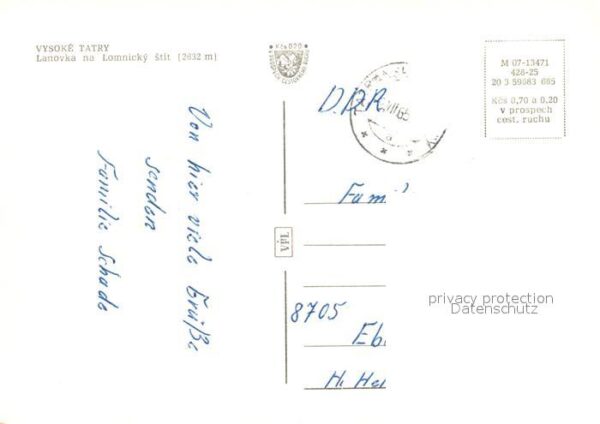 VYSOKÉ TATRY
Lanovka na Lomnický štít (2632 m)
Kčs 0,20
M 07-13471
428-25
20 3 59083 665
Kčs 0,70 a 0,20
v prospech
cest. ruchu
D.D.R.
VII 65
Von hier viele Grüße
senden
Familie Schade
Fam
VPL
8705
Eb
H. He
privacy protection
Datenschutz